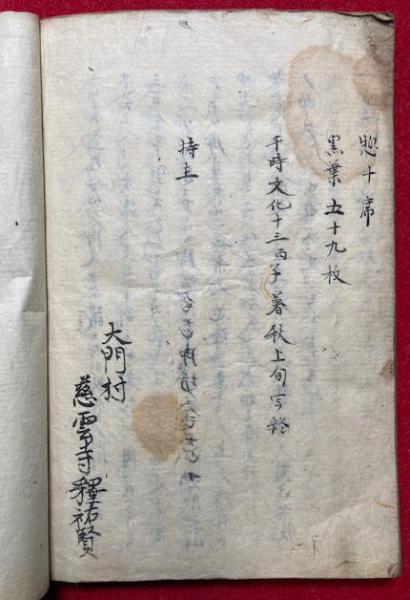 惣十席
墨葉五十九枚
于時文化十三丙子暮秋上旬写終
持主
大門村
慈雲寺釋祐賢